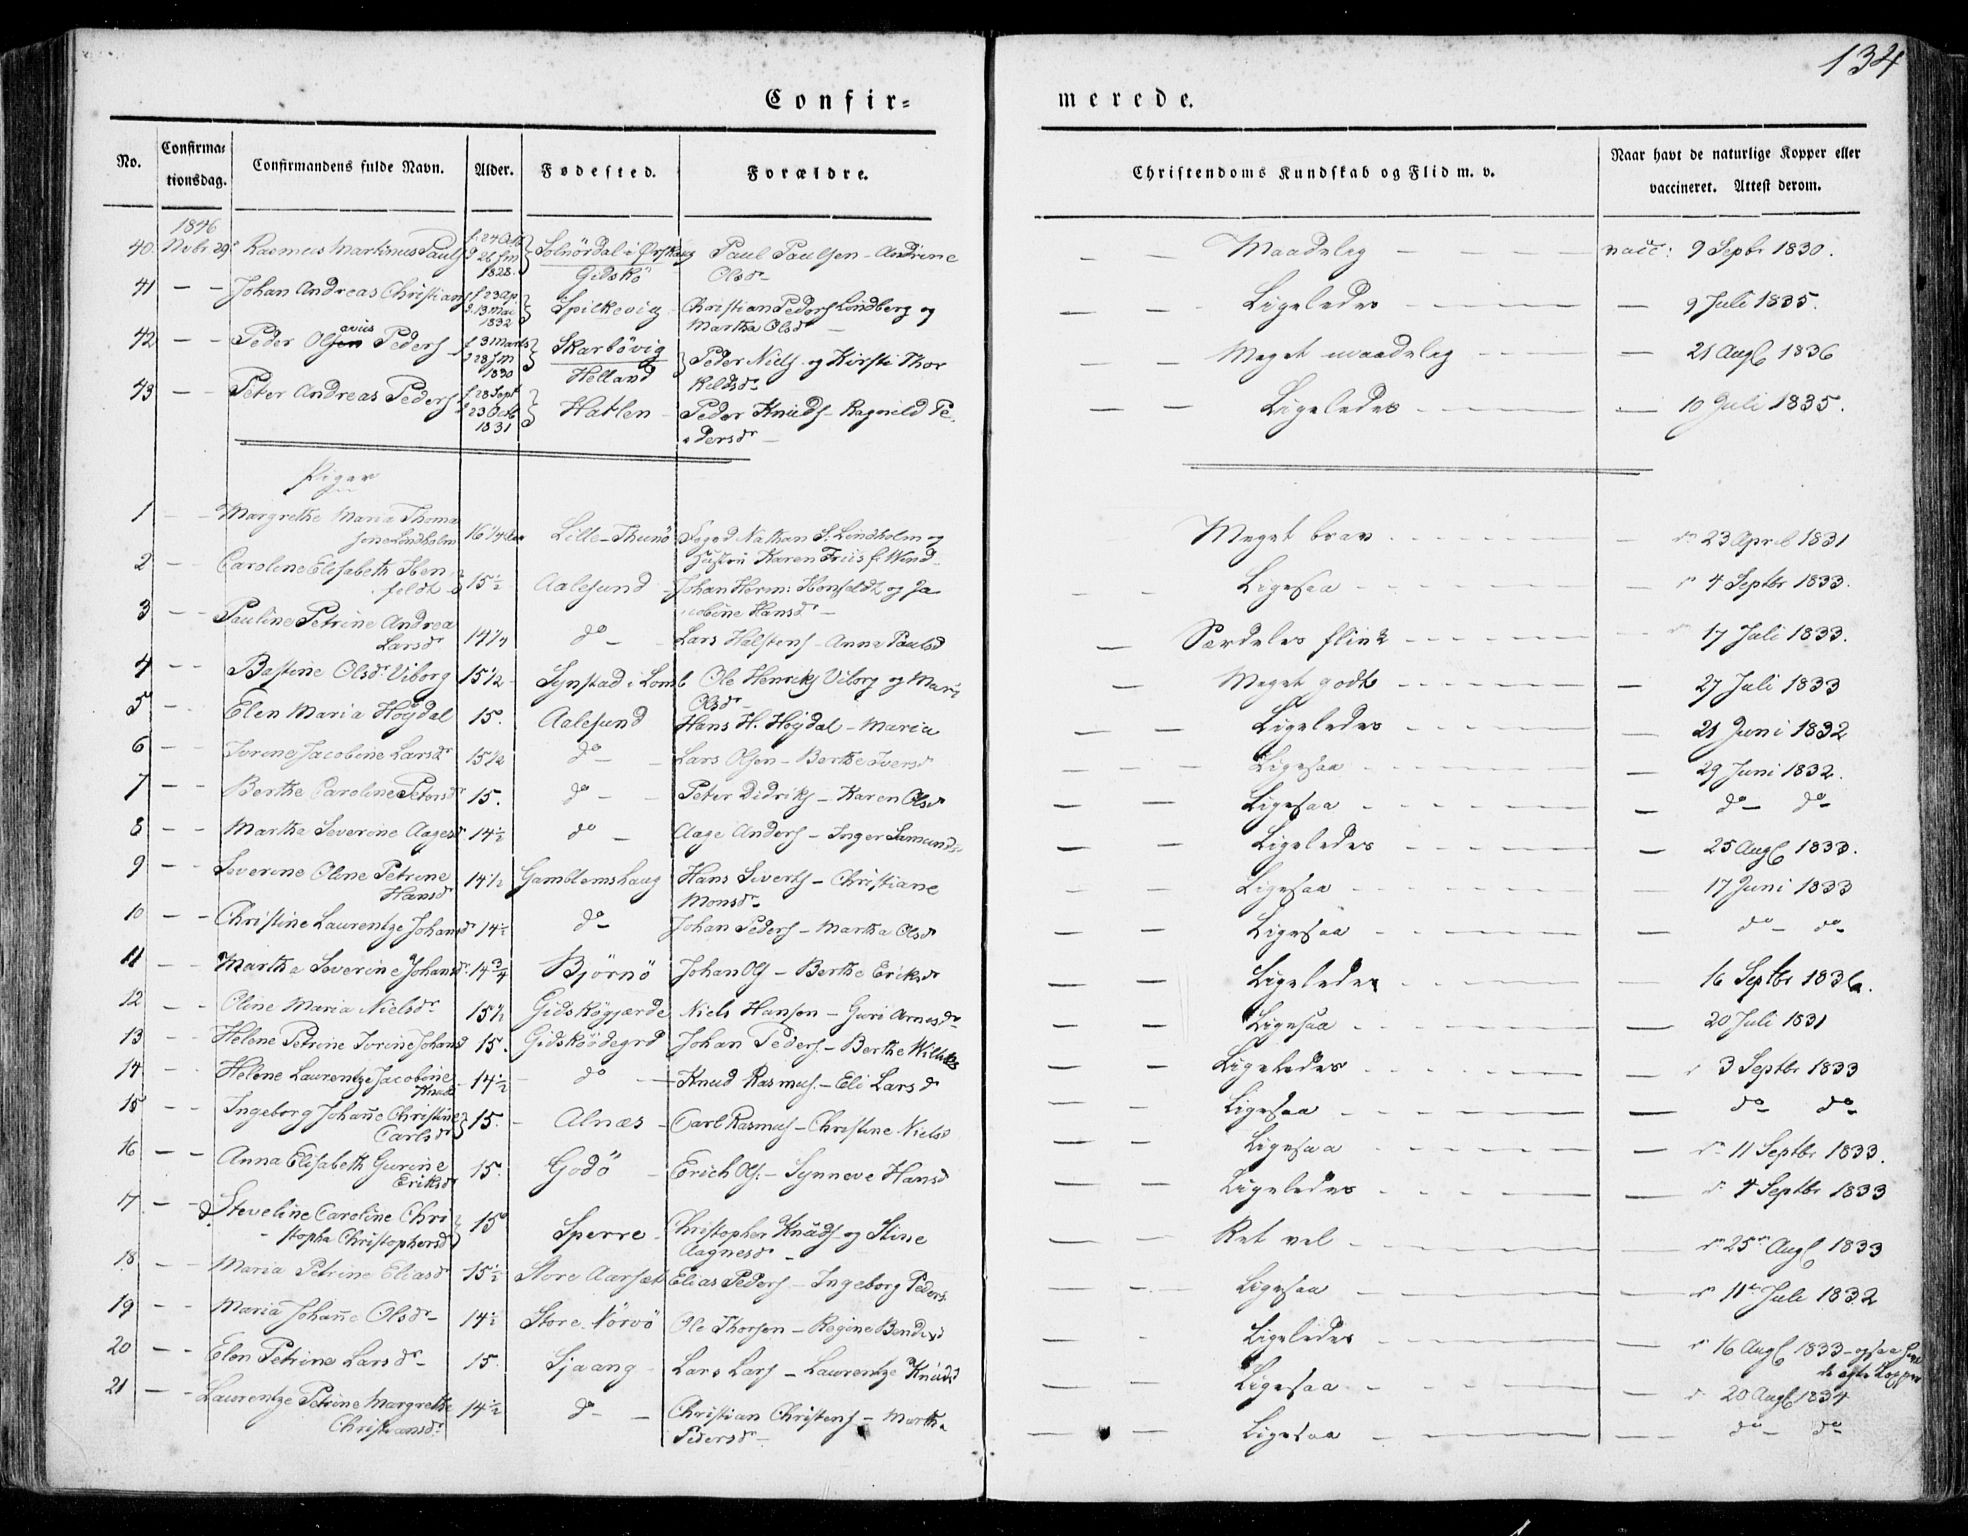 134
Confir= merede.
No. Confirmationsdag. Confirmandens fulde Navn. Alder. Fødested. Forældre. Christendoms Kundskab og Flid m. v. Naar havt de naturlige Kopper eller vaccineret. Attest derom.
1846
40 Nvbr 29 Rasmus Martinus Pauls f. 24 Oct 1828 Solnørdal i Ørskoug Gidskö Paul Paulsen - Andrine Olsdr Maadelig vacc: 9 Septbr 1830.
41 Johan Andreas Christians f 23 Ap. d. 13 Mai 1832 Spilkevig Christian Peders Lindberg og Martha Olsdr Ligeledes 9 Juli 1835.
42 Peder Olavus Peders f 3 Marts 1830 Skarbövig Helland Peder Niels og Kirsti Thorkeldsdr Meget maadelig 21 Aug 1836
43 Peter Andreas Peders f 28 Sept 23 Octb 1831 Hatlen Peder Knuds - Ragnild Pedersdr Ligeledes 10 Juli 1835.
Piger
1 Margrethe Maria Thomasine Lindholm 16 1/4 Lille-Thunö Foged Nathan S. Lindholm og Hustru Karen Friis f. Wind Meget brav do 23 April 1831
2 Caroline Elisabeth Hensfeldt 15 1/2 Aalesund Johan Herm: Honsfeldt og Jacobine Hansdr Ligesaa do 4 Septbr 1833.
3 Pauline Petrine Andrea Larsdr 14 1/4 do Lars Halstens - Anne Paulsd Særdeles flink do 17 Juli 1833.
4 Bastine Olsdr Viborg 15 1/2 Synstad i Lomb Ole Henriks Viborg og Mari Olsdr Meget godt 27 Juli 1833
5 Elen Maria Høydal 15. Aalesund Hans H. Høydal - Maria Ligeledes 21 Juni 1832
6 Iverine Jacobine Larsdr 15 1/2 do Lars Olsen - Berthe Iversd Ligesaa 29 Juni 1832.
7 Berthe Caroline Petersdr 15. do Peter Didriks - Karen Olsdr Ligesaa do do
8 Martha Severine Aagesd 14 1/2 do Aage Anders - Inger Samunds Ligeledes 25 Aug 1833.
9 Severine Oline Petrine Hansdr 14 1/2 Gamblemshaug Hans Siverts - Christiane Monsdr Ligesaa 17 Juni 1833
10 Christine Laurentze Johansdr 14 1/2 do Johan Peders - Martha Olsd Ligesaa do do
11 Martha Severine Johansdr 14 3/4 Bjørnö Johan Ols - Berthe Eriksdr Ligeledes 16 Septbr 1836.
12 Oline Maria Nielsdr 15 1/2 Gidskögjærde Niels Hansen - Guri Arnesdr Ligesaa 20 Juli 1831
13 Helene Petrine Iverine Johansd 15. Gidsköödegrd Johan Peders - Berthe Willuks Ligeledes 3 Septbr 1833
14 Helene Laurentze Jacobine Knudsdr 14 1/2 do Knud Rasmus - Eli Larsdr Ligesaa do do
15 Ingeborg Johañe Christine Carlsdr 15. Alnæs Carl Rasmus - Christine Nielsd Ligesaa do 11 Septbr 1833.
16 Anna Elisabeth Gurine Eriksdr 15. Godö Erich Ols - Synneve Hansd Ligeledes do 4 Septbr 1833
17 Steveline Caroline Christopha Christophersdr 15 Sperre Christopher Knuds og Stine Aagnesdr Ret vel do 25 Aug 1833
18 Maria Petrine Eliasdr 15 1/2 Store Aarset Elias Peders - Ingeborg Peders Ligesaa do 11 Juli 1832
19 Maria Johañe Olsdr 14 1/2 Store Nörvö Ole Thorsen - Regine Bendixd Ligeledes do 16 Aug 1833 - ogsaa havt de ægte Kopper
20 Elen Petrine Larsdr 15. Sjaang Lars Lars - Laurentze Knudsd Ligesaa do 20 Aug 1834
21 Laurentze Petrine Margrethe Christiansdr 14 1/2 do Christian Christens - Martha Pedersdr Ligesaa do do